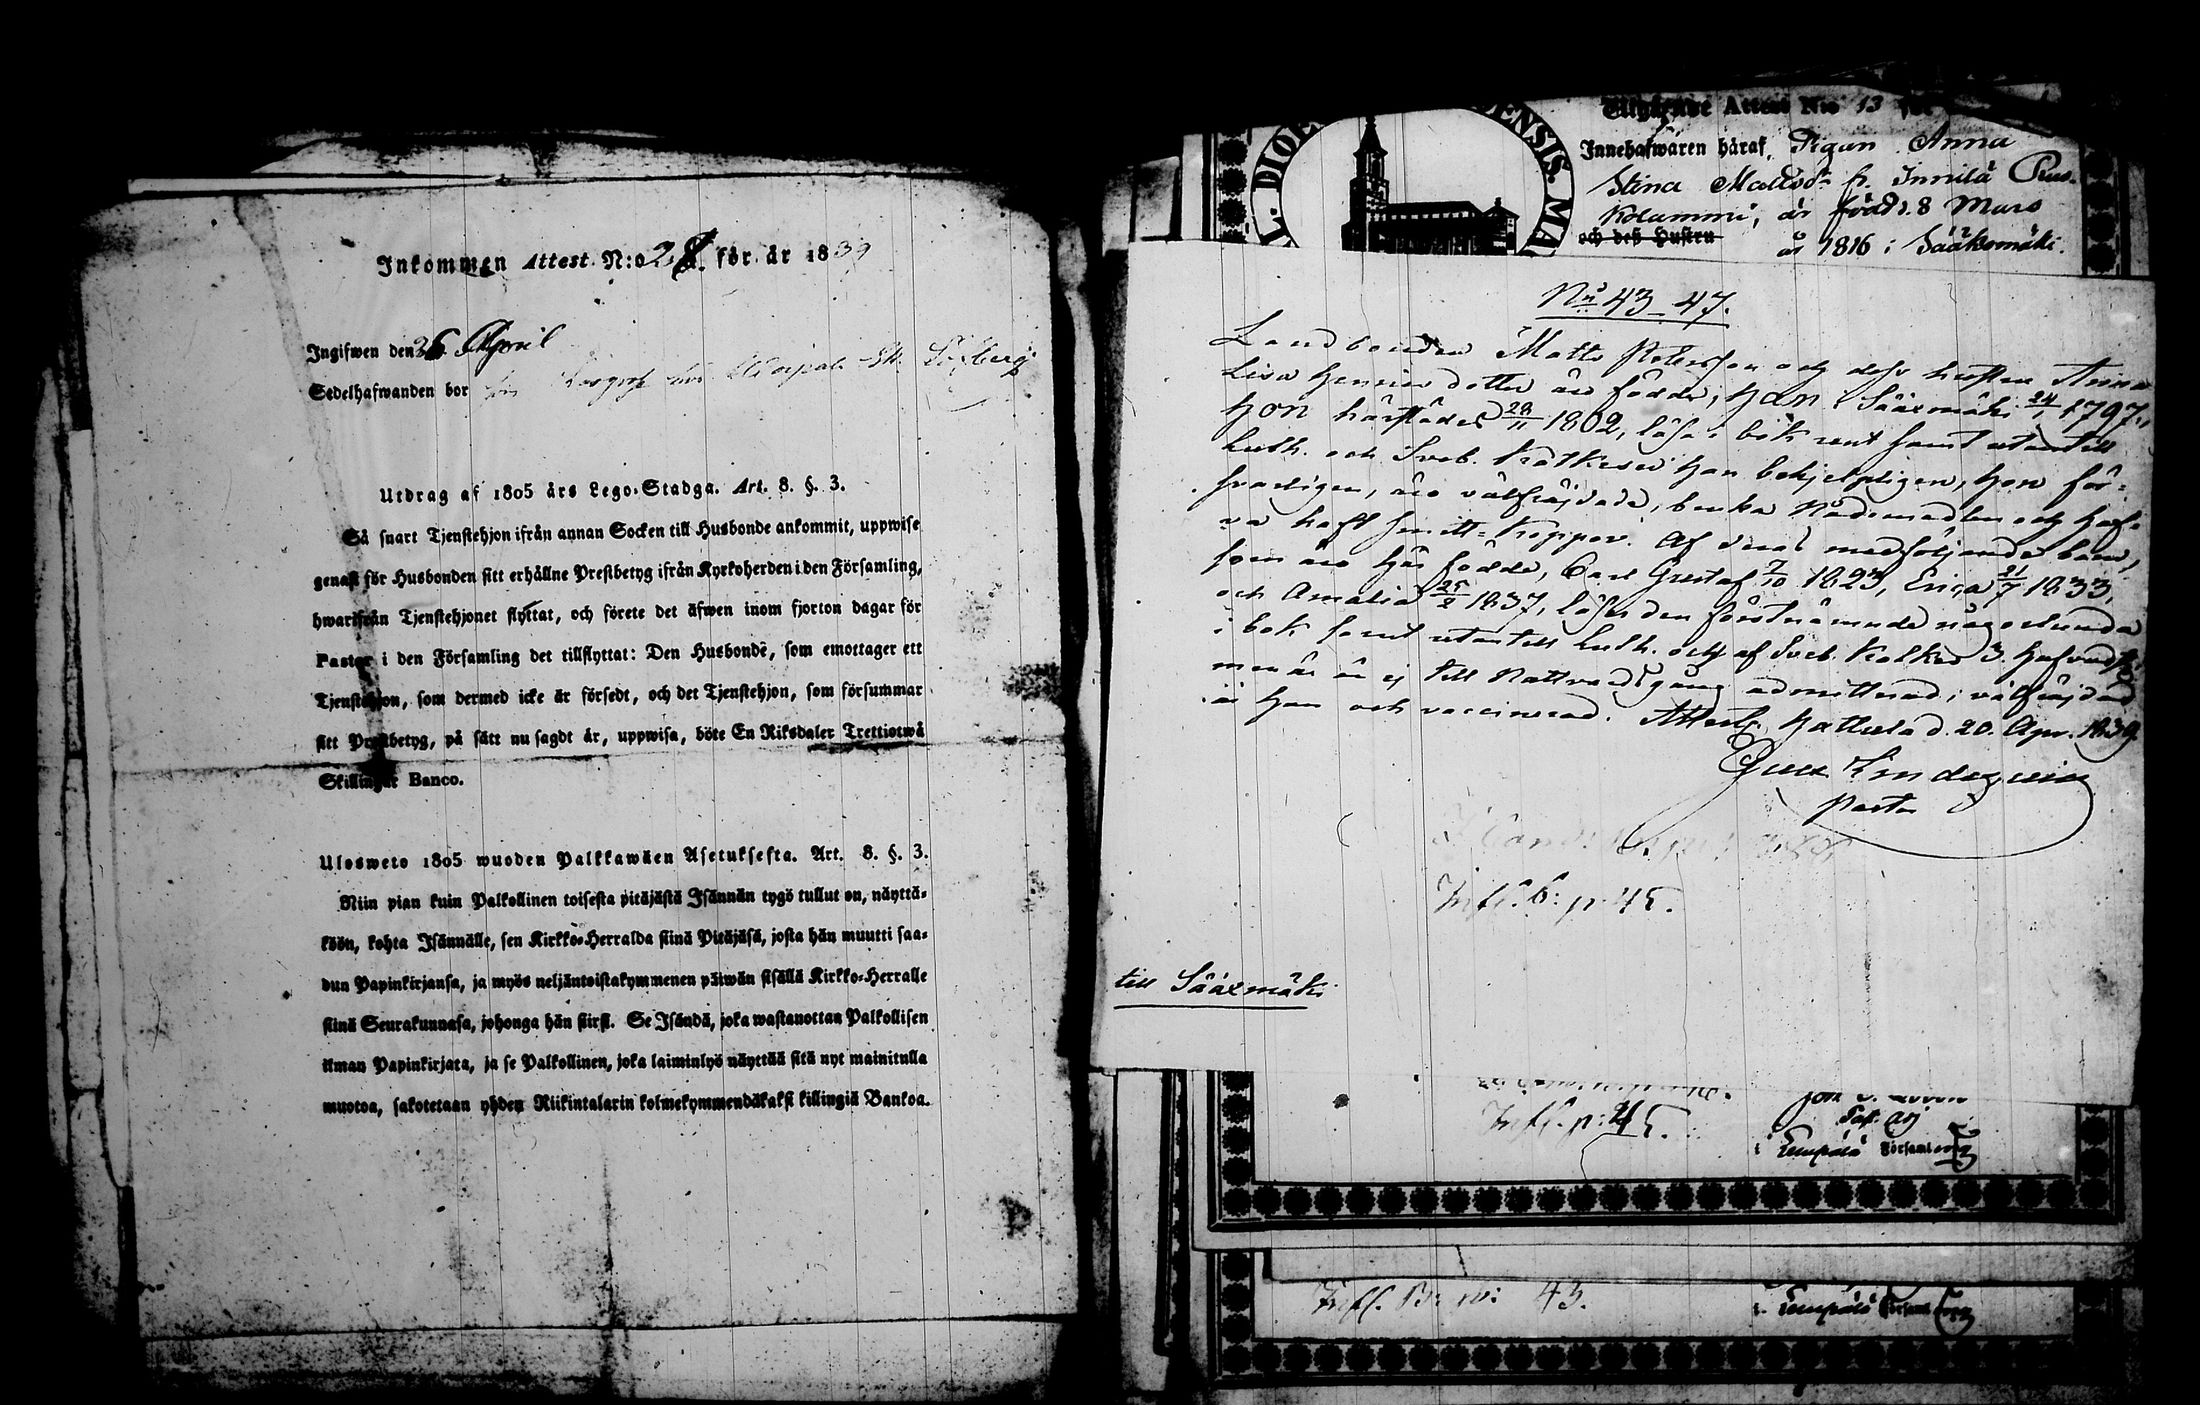 Inkommen Attest. N:o 28. för år 1839
Ingifwen den 26 April
Sedelhafwanden bor
Utdrag af 1805 års Lego-Stadga. Art. 8. §. 3.
Så snart Tjenstehjon ifrån annan Socken till Husbonde ankommit, uppwise
genast för Husbonden sitt erhållne Prestbetyg ifrån Kyrkoherden i den Församling,
hwarifrån Tjenstehjonet flyttat, och förete det äfwen inom fjorton dagar för
Pastor i den Församling det tillflyttat: Den Husbonde, som emottager ett
Tjenstehjon, som dermed icke är försedt, och det Tjenstehjon, som försummar
sitt Prestbetyg, på sätt nu sagdt är, uppwisa, böte En Riksdaler Trettiotwå
Skillingar Banco.
Ulosweto 1805 wuoden Palkkawäen Asetuksesta. Art. 8. §. 3.
Niin pian kuin Palkollinen toisesta pitäjästä Isännän tygö tullut on, näyttä-
köön, kohta Isännälle, sen Kirkko-Herralda siinä Pitäjäsä, josta hän muutti saa-
dun Papinkirjansa, ja myös neljäntoistakymmenen päiwän sisällä Kirkko-Herralle
siinä Seurakunnasa, johonga hän siirsi. Se Isändä, joka wastanottaa Palkollisen
ilman Papinkirjata, ja se Palkollinen, joka laiminlyö näyttää sitä nyt mainitulla
muotoa, sakotetaan yhden Riikintalarin kolmekymmendäkaksi killingiä Bankoa.
DIOE ENSIS. MA
Utgående Attest N:o 13
Innehafwaren häraf, Pigan Anna
Stina Mattsdr fr. Innilä Pus-
kolammi, är född d. 8 Mars
och deß Hustru år 1816 i Sääksmäki.
No 43-47.
Landbonden Matts Petersson och dess hustru Anna
Lisa Henricsdotter äro födde, han i Sääxmäki 24/1 1797,
hon härstädes 28/11 1802, läsa i bok rent samt utantill
Luth. och Sveb. Katkesen han behjelpligen, hon för-
svarligen, äro välfrejdade, bruka Nådemedlen och haf-
va haft smitt-koppor. Af deras medföljande barn,
som äro här födde, Carl Gustaf 7/10 1823, Erica 21/7 1833,
och Amalia 25/2 1837, läser den förstnämnde någorlunda
i bok samt utantill Luth. och af Sveb. Katkes 3. hufvudst.
men är än ej till Nattvardsgång admitterad; välfrejdad
är han och vaccinerad. Attest. Hattula d. 20. Apr. 1839.
Pastor
Infl. B: p. 45.
till Sääxmäki
Infl. p: 45.
i Lempälä Församling
Infl. B: p: 43.
i Lempälä Församling